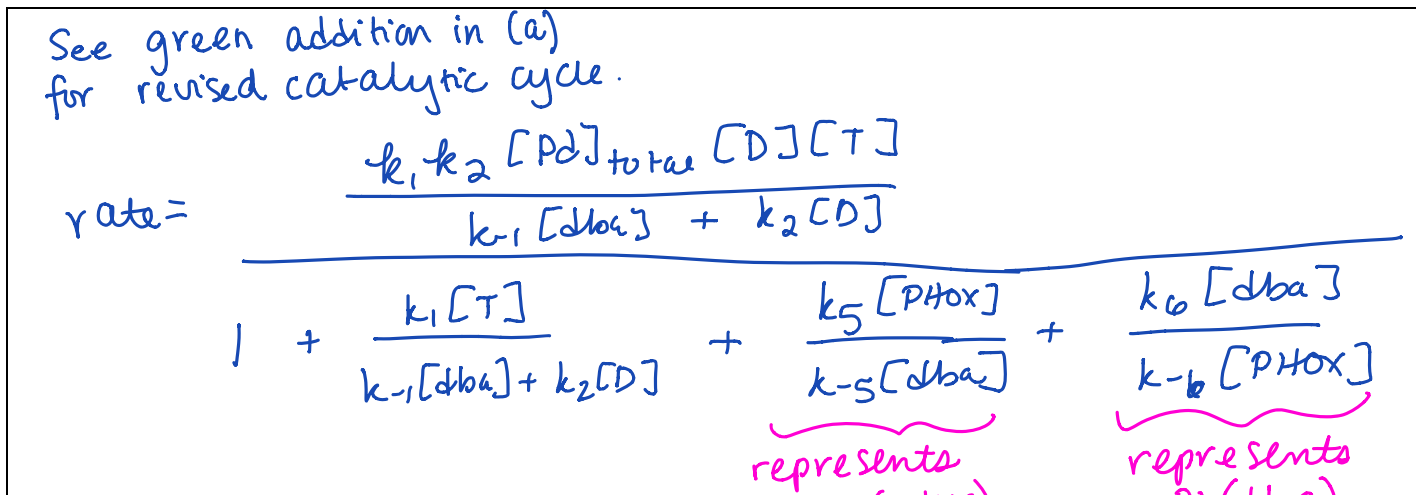 See green addition in (a)
for revised catalytic cycle.
rate =
k₁ k₂ [Pd]total [D][T]
k₋₁ [dba] + k₂[D]
1 + k₁[T] / k₋₁[dba] + k₂[D] + k₅[PHOX] / k₋₅[dba] + k₆[dba] / k₋₆[PHOX]
represents represents